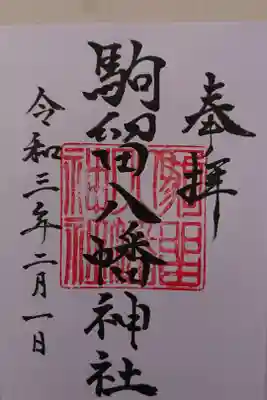 奉拝
駒留八幡神社
令和三年二月一日